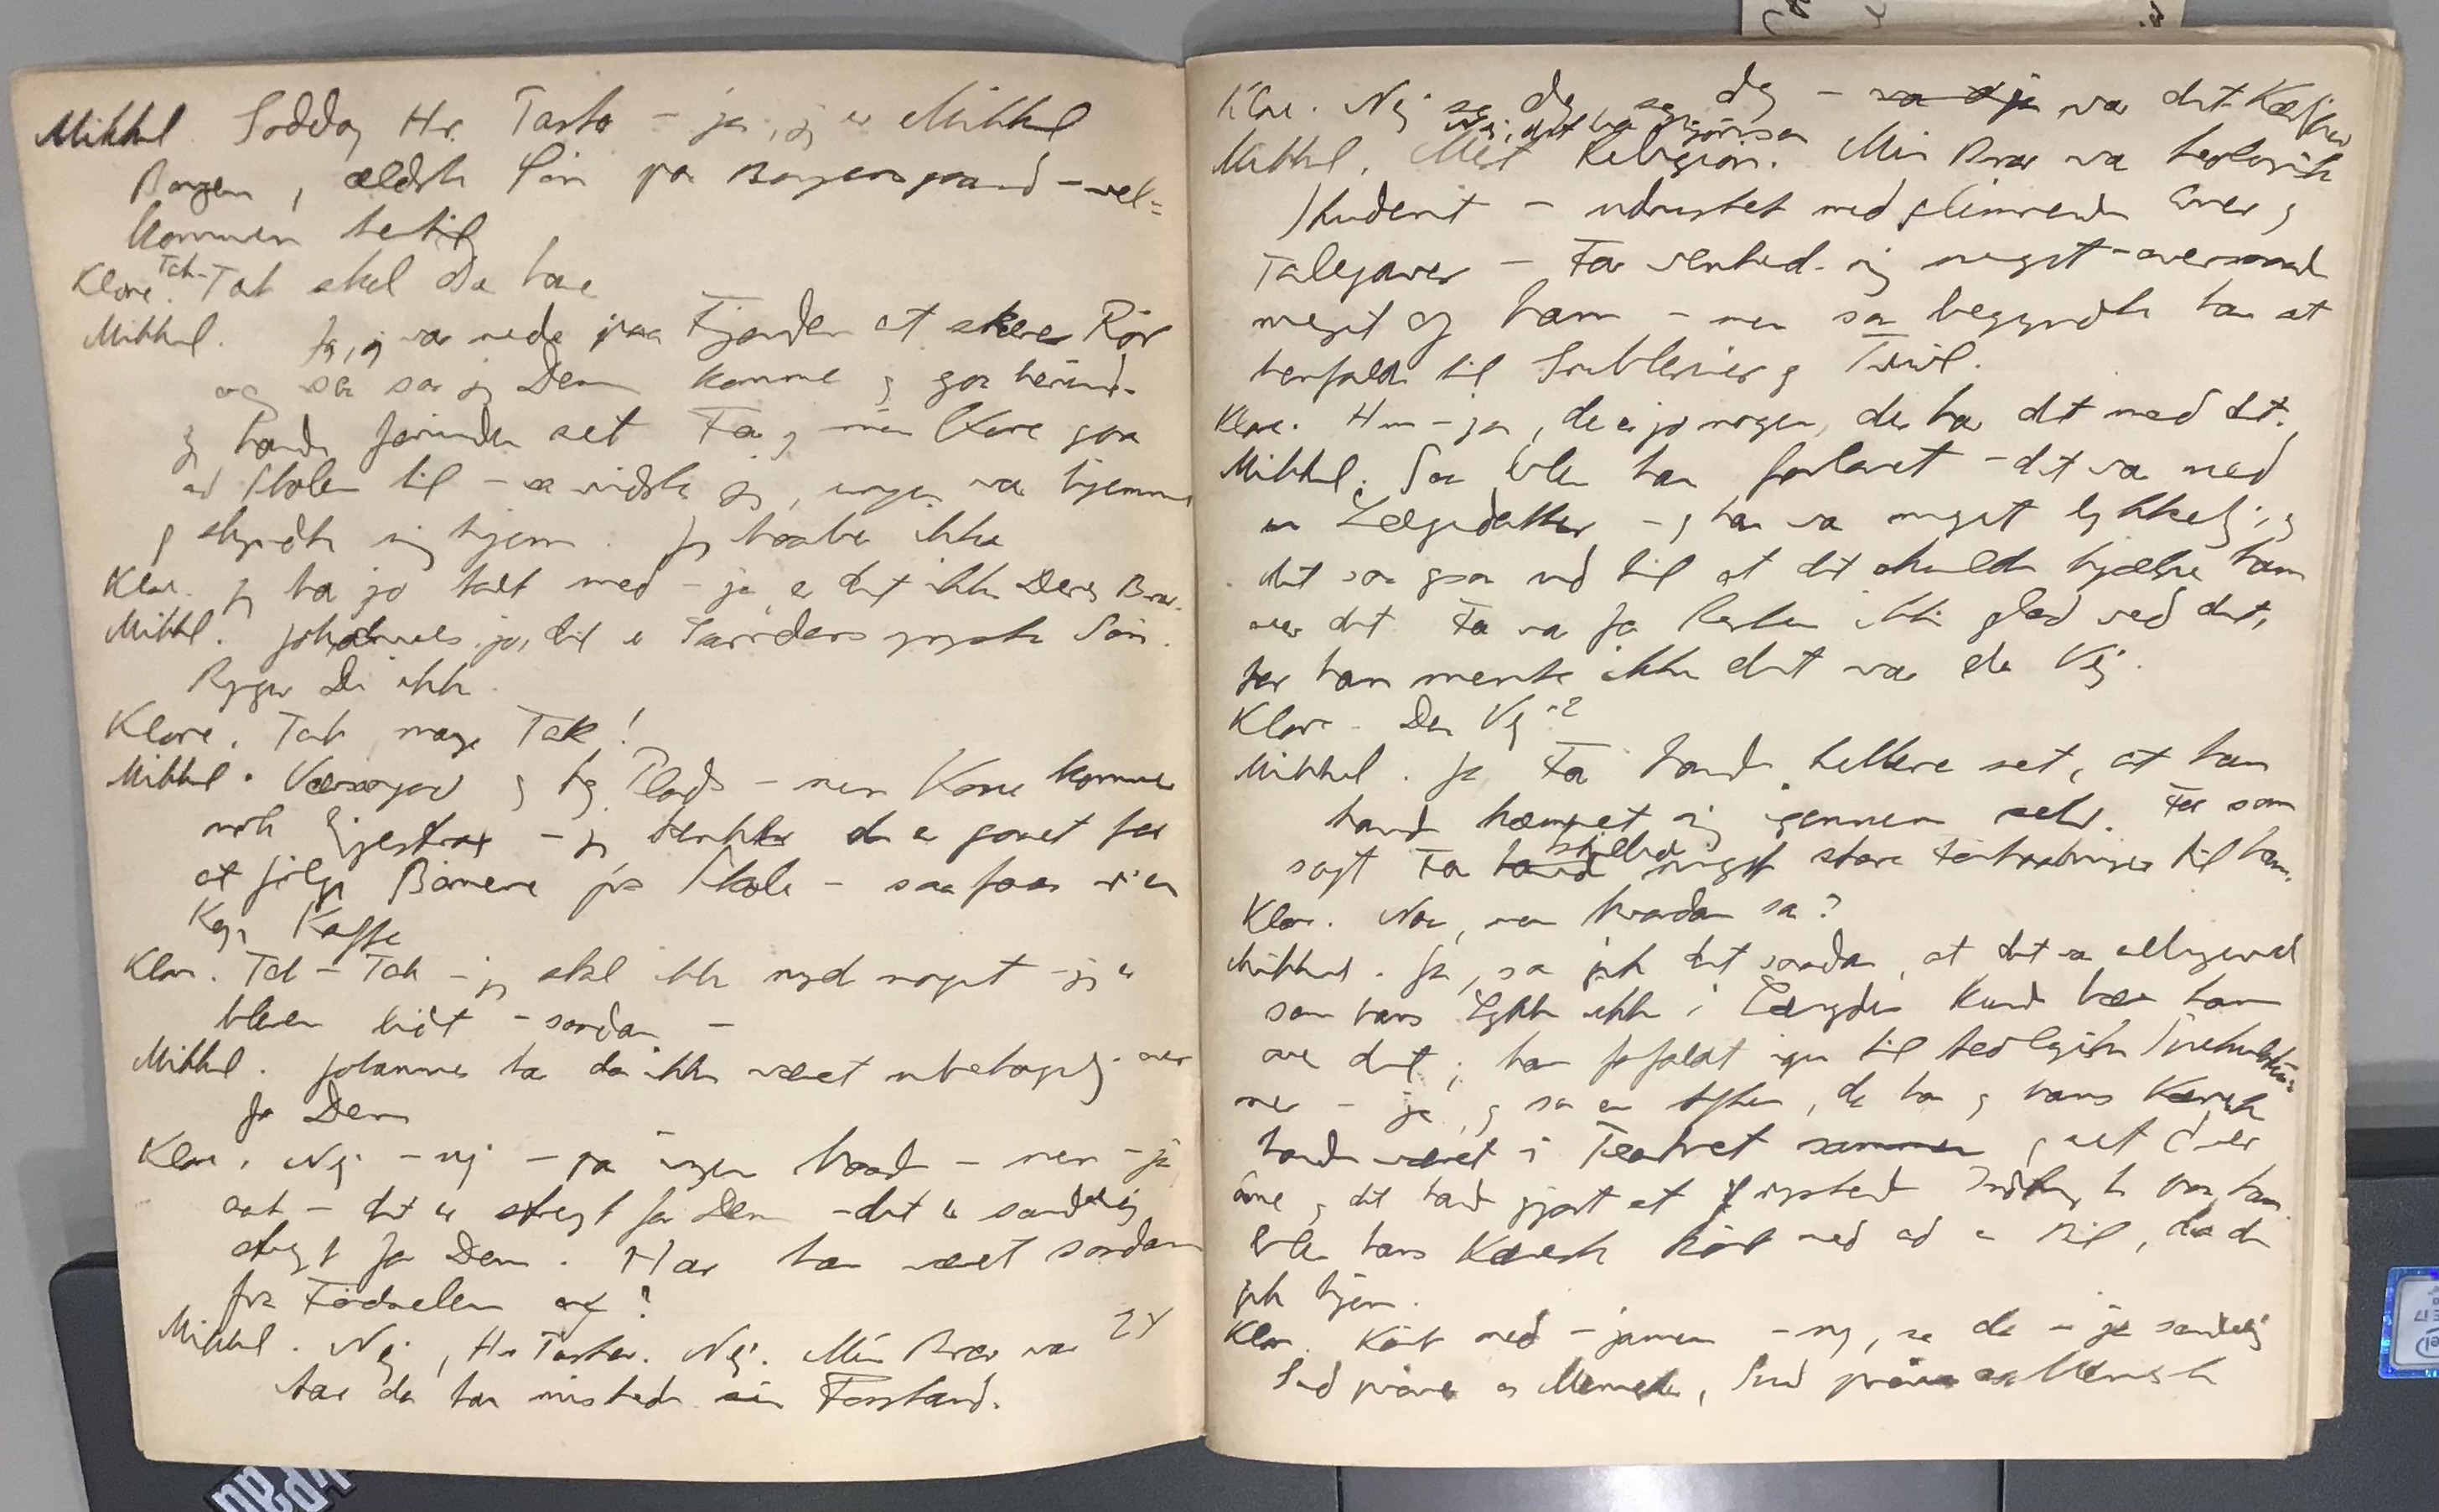 Mikkel. Goddag Hr. Pastor – ja, jeg er Mikkel
Borgen, ældste Søn paa Borgensgaard – vel=
kommen hertil
Klare. Tak - Tak skal De have
Mikkel. Ja, jeg var nede paa Fjorden at skære Rør
og saa saa jeg Dem komme og gaa herind.
jeg havde forinden set Far og min Kone gaa
ad Skolen til – saa vidste jeg, ingen var hjemme
og skyndte mig hjem. Jeg haaber ikke
Klare. Jeg har jo talt med – ja, er det ikke Deres Bror.
Mikkel. Johannes, jo, det er Gaardens yngste Søn.
Ryger De ikke.
Klare. Tak mange Tak!
Mikkel. Værsogod og tag Plads – min Kone kommer
nok ligestrax – jeg tænker de er gaaet for
at følge Børnene fra Skole – saa faar vi en
Kop Kaffe
Klare. Tak – Tak – jeg skal ikke nyde noget – jeg er
bleven lidt – saadan –
Mikkel. Johannes har da ikke været ubehagelig over
for Dem
Klare. Nej – nej – paa ingen Maade – men – ja
at – det er strengt for Dem – det er sandelig
strengt for Dem. Har han været saadan
fra Fødselen af?
Mikkel. Nej, Hr Pastor. Nej. Min Bror var 24
Aar da han mistede sin Forstand.
Klare. Nej se dog, se dog – var det Kærlighed
Nej, det var
Mikkel. Religion. Min Bror var teologisk
Student – udrustet med glimrende Evner og
Talegaver – Far ventede sig meget – overmaade
meget af ham – men saa begyndte han at
henfalde til Grublerier og Tvivl.
Klare. Hm – ja, der er jo nogen, der har det med det.
Mikkel. Saa blev han forlovet – det var med
en Lægedatter – og han var meget lykkelig, og
det saa gaa ud til at det skulde hjælpe ham
over det. Far var for Resten ikke glad ved det,
for han mente ikke det var den Vej.
Klare. Den Vej –?
Mikkel. Ja Far havde hellere set, at han
havde kæmpet sig igennem selv. Før som
sagt Far havde stillet meget store Forhaabninger til ham.
Klare. Naa, men hvordan saa?
Mikkel. Ja, saa gik det saadan, at det var alligevel
som hans Lykke ikke i Længden kunde bære ham
over det; han forfaldt igen til teologiske Spekulatio-
ner – ja, og saa en Aften, da han og hans Kæreste
havde været i Teatret sammen og set Over
Ævne og det havde gjort et Indtryk paa ham
blev hans Kæreste kørt ned af en Bil, da de
gik hjem.
Klare. Kørt ned – jamen – nej, se da – ja sandelig
Gud prøver os Mennesker, Gud prøver os Mennesker